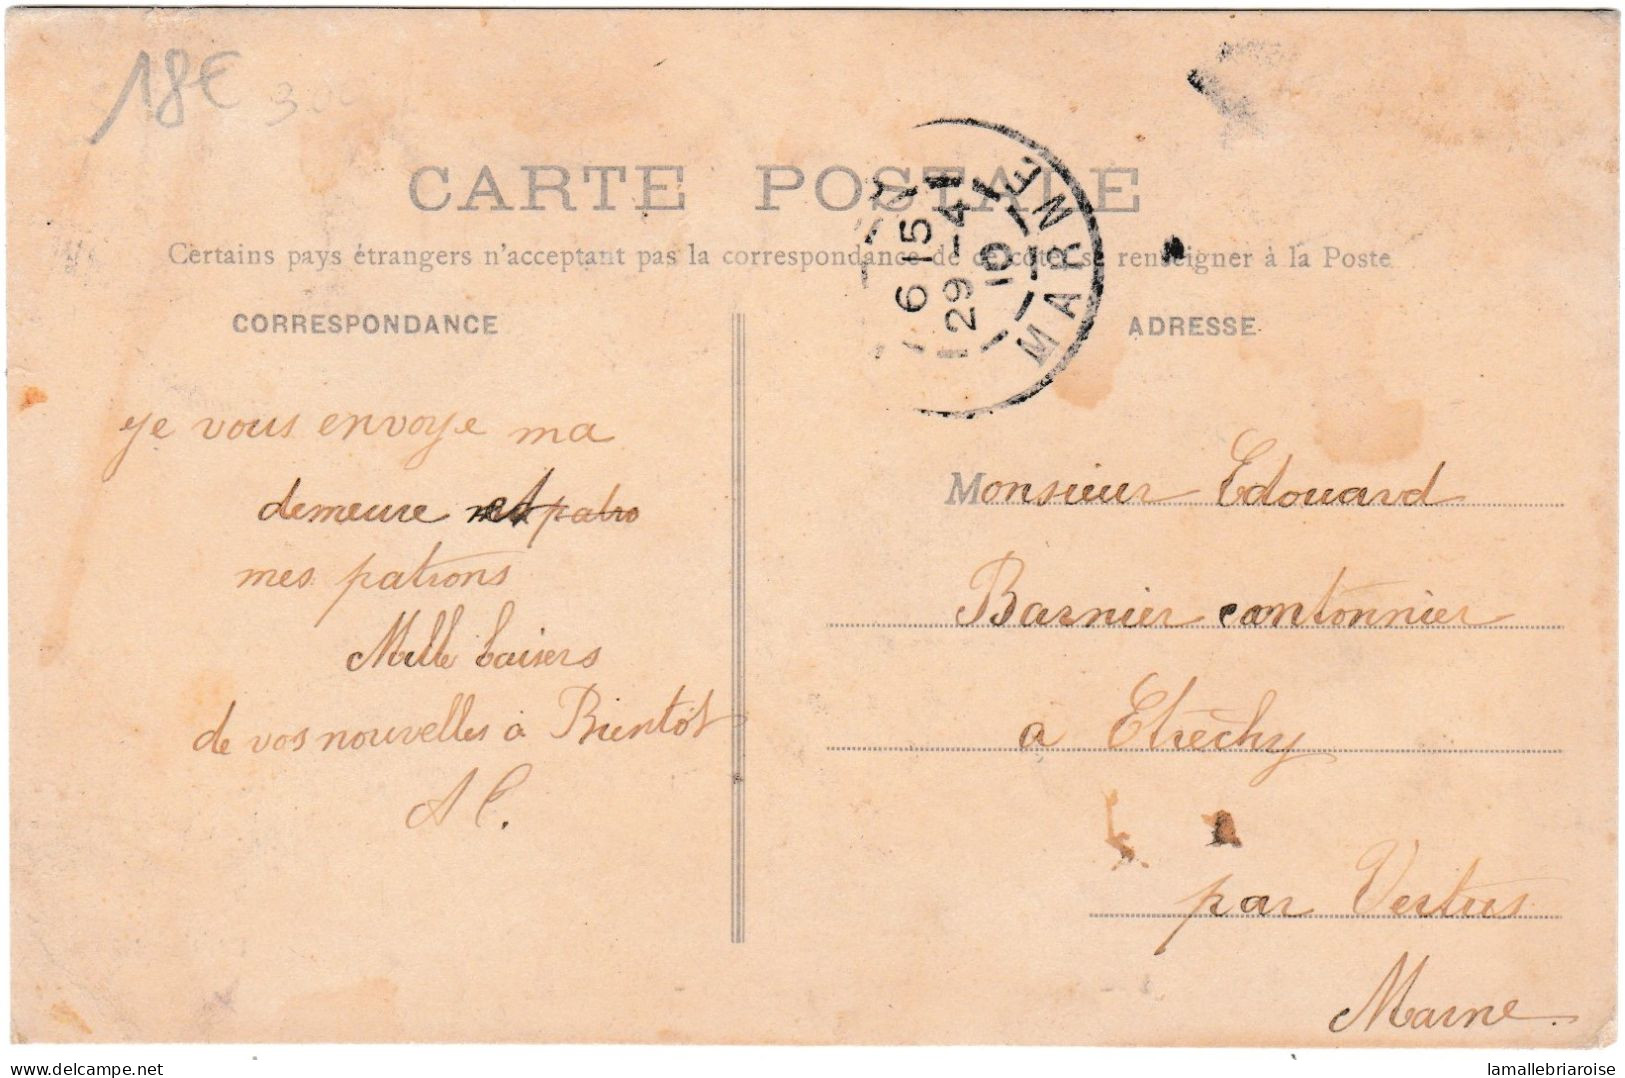 18€
CARTE POSTALE
Certains pays étrangers n'acceptant pas la correspondance de ce côté, se renseigner à la Poste
6 15
29 - 4
10
MARNE
CORRESPONDANCE
ADRESSE
je vous envoye ma
demeure et patro
mes patrons
Mille baisers
de vos nouvelles à Bientôt
A C.
Monsieur Edouard
Barnier cantonnier
a Etrèchy
par Vertus
Marne.
delcampe.net
lamallebriaroise